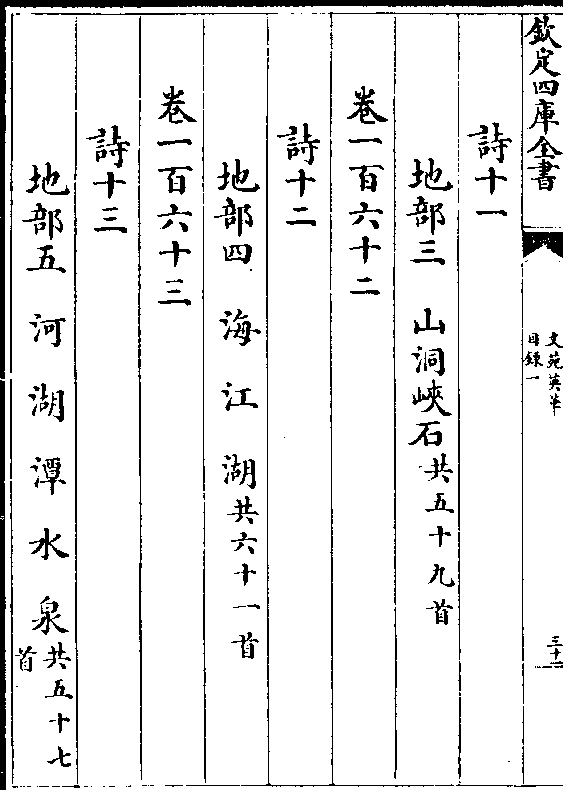 欽定四庫全書
文苑英華
目録一
三十一
詩十一
地部三 山洞峽石共五十九首
卷一百六十二
詩十二
地部四 海 江 湖共六十一首
卷一百六十三
詩十三
地部五 河 湖 潭 水 泉共五十七
首